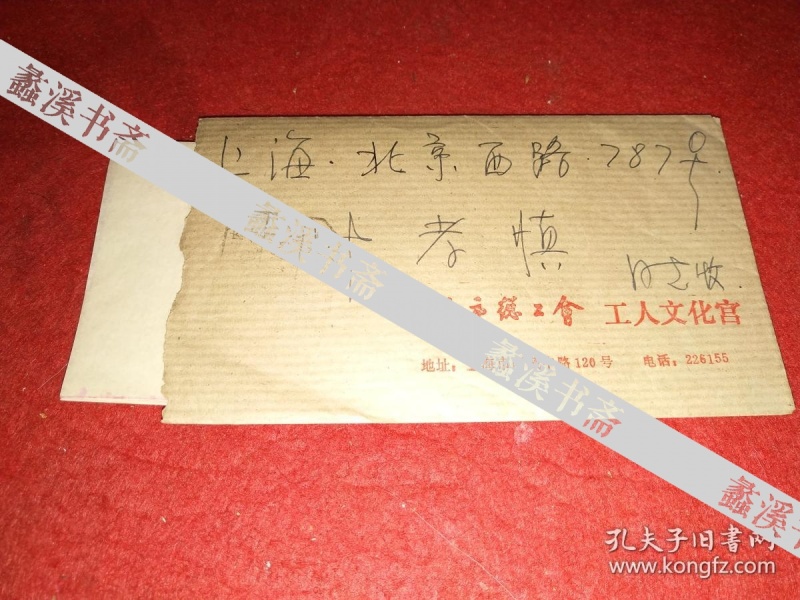 上海.北京西路.787号.
孝慎 同志收.
市總工會 工人文化宫
地址：上海市 路120号 电话：226155
蠡溪书斋
蠡溪书斋
蠡溪书斋
蠡溪书斋
孔夫子旧书网
www.kongfz.com